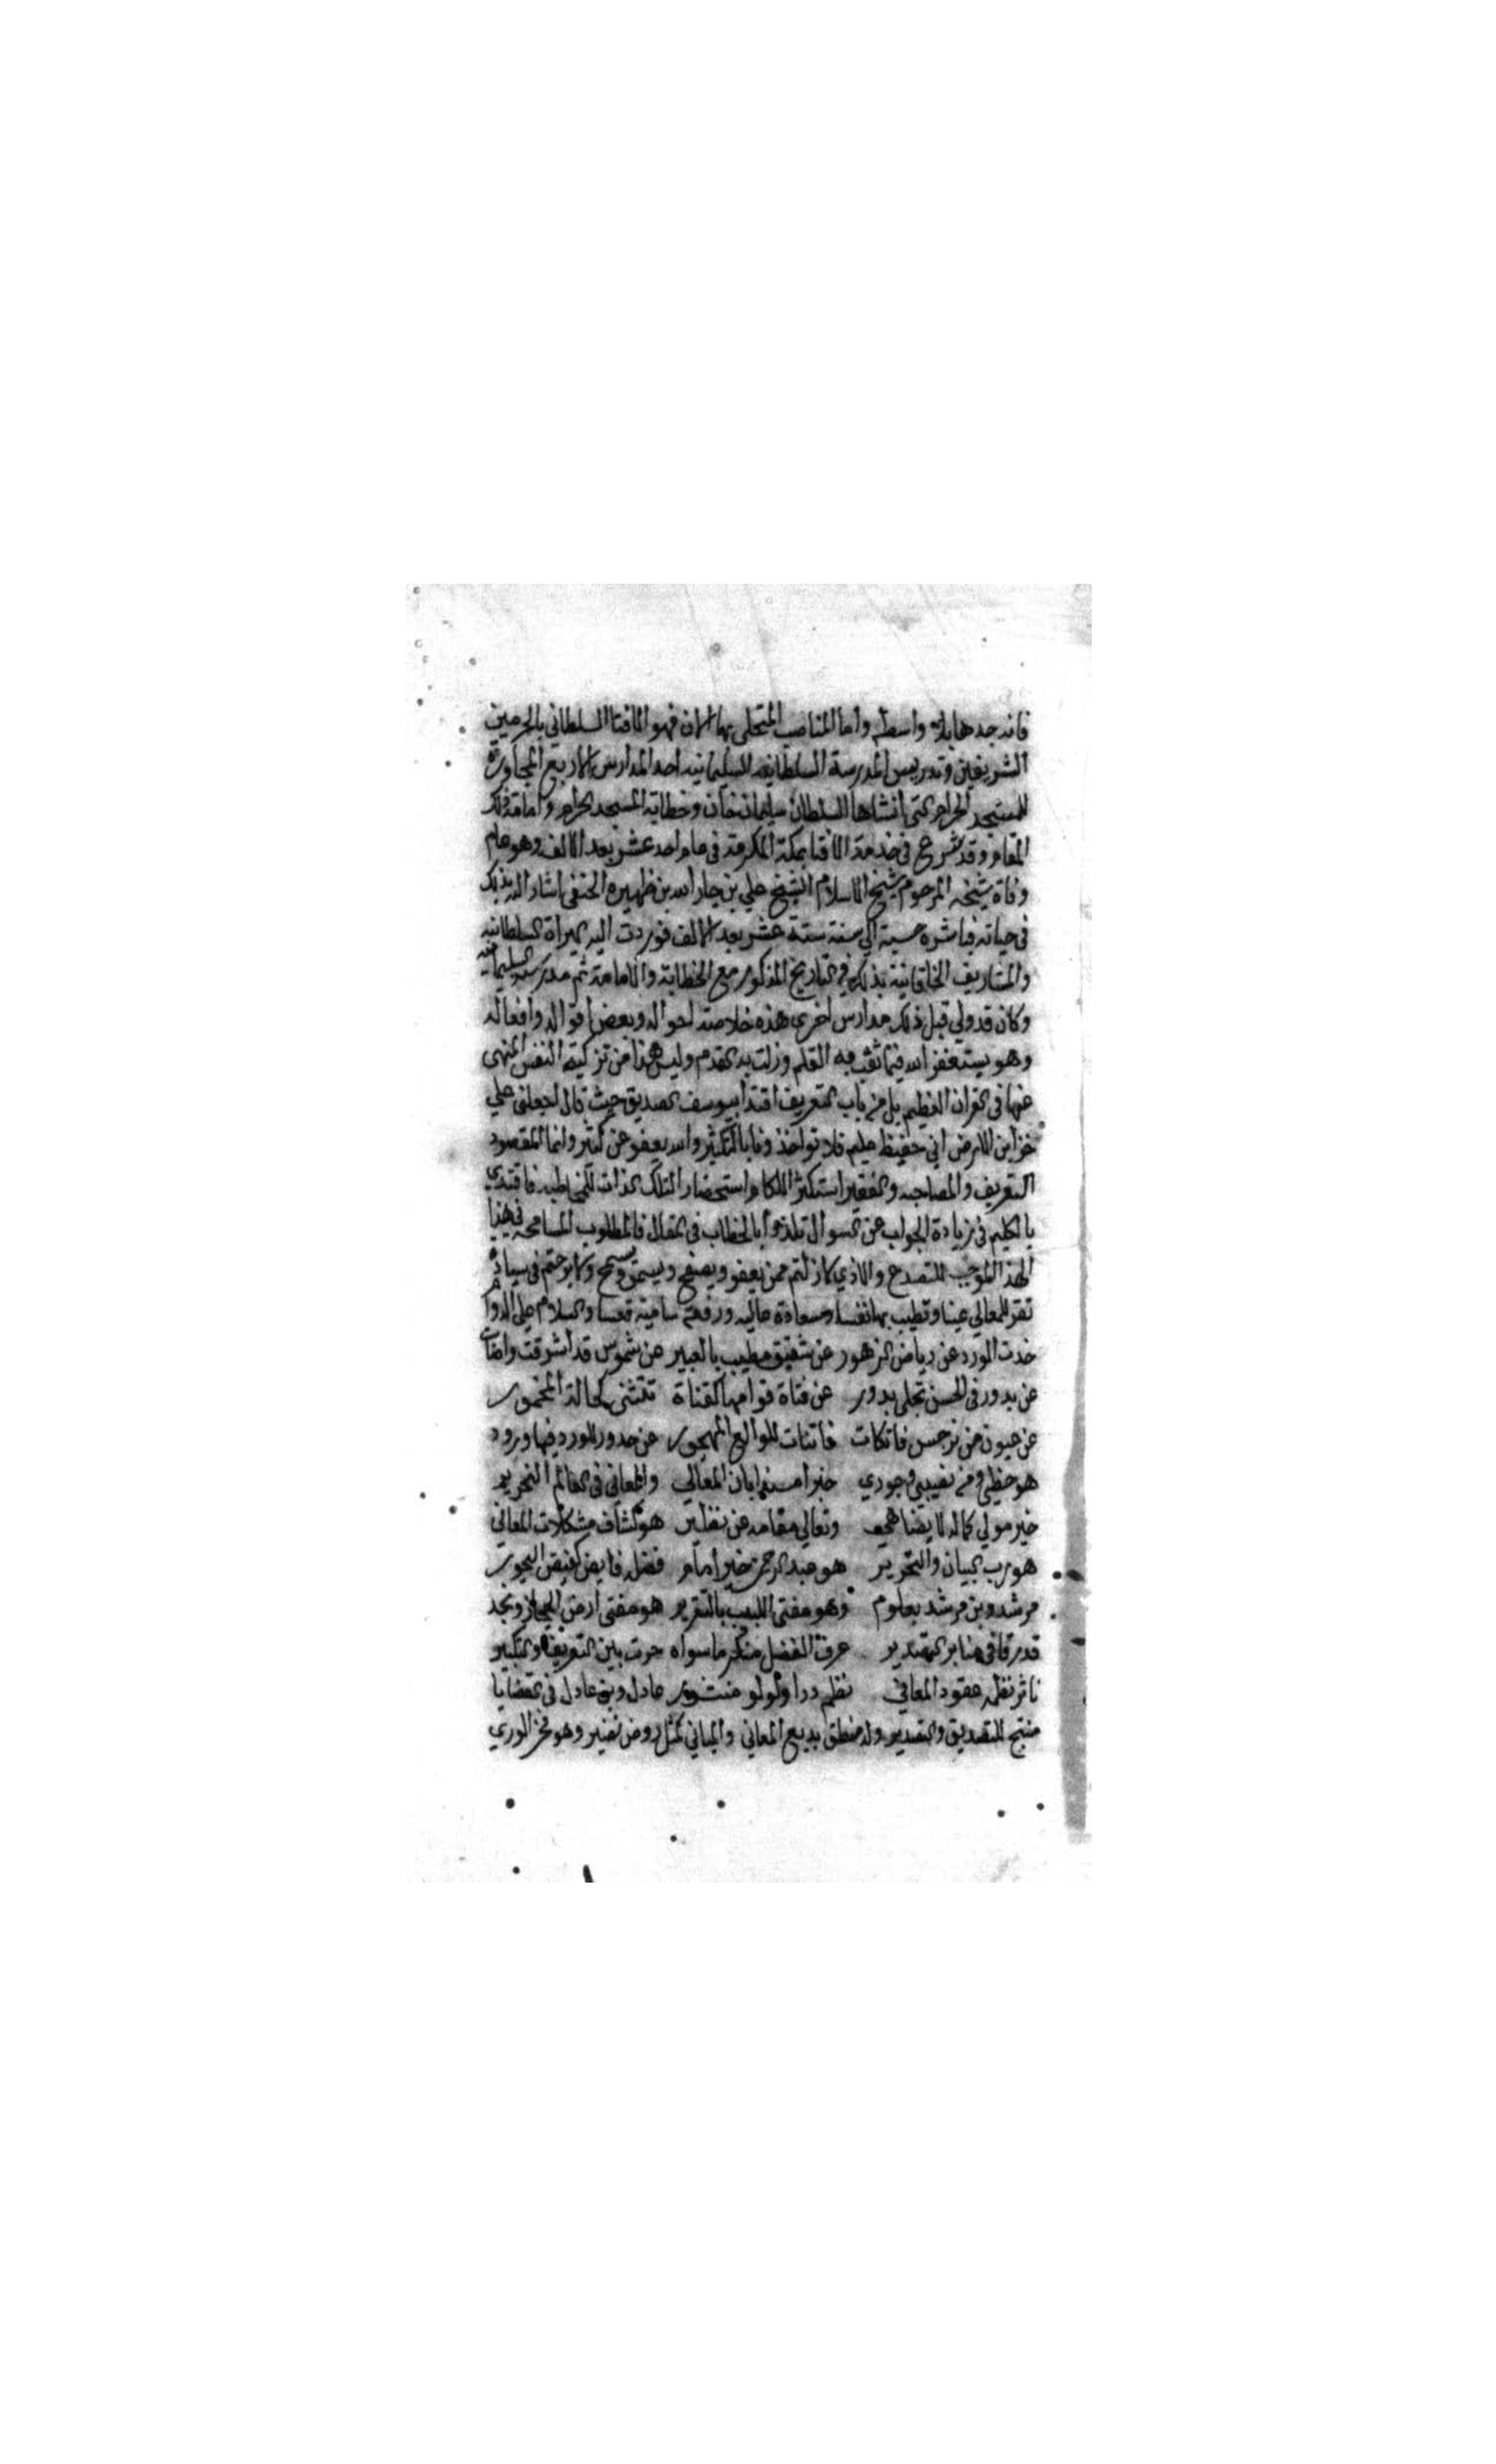 فانه جدها بلا واسطه واما المناصب المتحلي بها الان فهو الافتا السلطاني بالحرمين
الشريفين وتدريس المدرسة السلطانيه السليمانيه احد المدارس الاربع المجاورة
للمسجد الحرام التي انشاها السلطان سليمان خان وخطابة المسجد الحرام وامامة ذلك
المقام وقد شرع في خدمة الافتا بمكة المكرمة في عام احد عشر بعد الالف وهو عام
وفاة شيخه المرحوم شيخ الاسلام الشيخ علي بن جار الله بن ظهيره الحنفي اشار اليه بذلك
في حياته فباشره حسبة الي سنة ستة عشر بعد الالف فوردت اليه البراة السلطانيه
والتشاريف الخاقانية بذلك في التاريخ المذكور مع الخطابة والامامة ثم مدرسه السليمانيه
وكان قد ولي قبل ذلك مدارس اخري هذه خلاصة احواله وبعض اقواله وافعاله
وهو يستغفر الله فيما ثقب به القلم وزلت به القدم وليس هذا من تزكية النفس المنهي
عنها في القران العظيم بل من باب التعريف اقتدا بيوسف الصديق حيث قال اجعلني علي
خزاين الارض اني حفيظ عليم فلا تواخذونا بالتكثير والله يعفو عن كثير وانما المقصود
التعريف والمصاحبه والفقير استكثر الكلام استحضارا لتلك الذات للمخاطبه فاقتدي
بالكليم في زيادة الجواب عن السوال تلذذا بالخطاب في المقال فالمطلوب المسامحه في هذا
الهذا الموجب للتصدع والاذي لا زلتم ممن يعفو ويصفح ويسمح ولا برحتم في سيادة
تقر للمعالي عينا وتطيب بها نفسا وسعادة عاليه ورفعة سامية قعسا والسلام علي الدوام
حدث الورد عن رياض الزهور عن شقيق مطيب بالعبير عن شموس قد اشرقت واضات
عن بدور في الحسن تجلي بدور عن فتاة قوامها كقناة تنثني كحالة المخمور
عن عيون من نرجس فاتكات فاتنات للوالع المهجور عن خدور للورد فيها ورود
هو حظي ومن نصيبي وجودي خير امت ابان المعالي والمعاني في العالم النحرير
خير مولي كماله لا يضاهي وتعالي مقامه عن نظير هو كشاف مشكلات المعاني
هو رب البيان والتحرير هو عبد الرحمن خير امام فضله فايض كفيض البحور
مرشد وبن مرشد بعلوم وهو مفتي اللبيب بالتقرير هو مفتي ارض الحجاز ونجد
قد رقا في منابر التصدير عرف الفضل منكر ما سواه حرت بين التعريف والتنكير
ناثر نظمه عقود المعاني نظم درا ولولو منثور عادل وبن عادل في القضايا
منتج للتصديق والتصدير وله منطق بديع المعاني والمباني كمثل روض نضير وهو فخر الوري